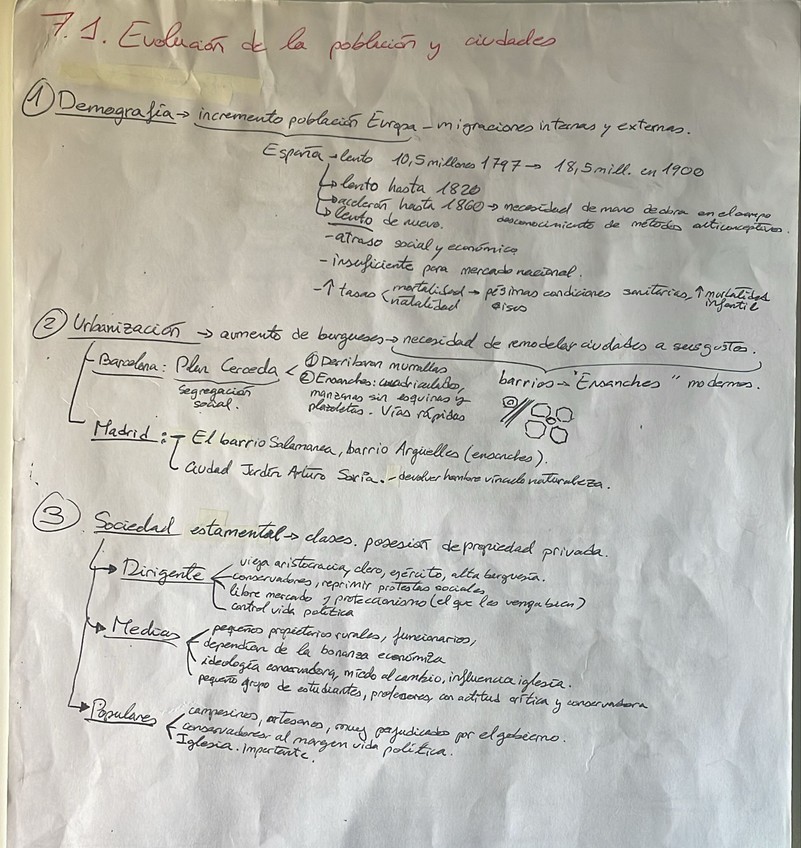 7.1. Evolución de la población y ciudades
① Demografía → incremento población Europa - migraciones internas y externas.
España → lento 10,5 millones 1797 → 18,5 mill. en 1900
↳ lento hasta 1820
↳ aceleran hasta 1860 → necesidad de mano de obra en el campo
desconocimiento de métodos anticonceptivos.
↳ lento de nuevo.
- atraso social y económico
- insuficiente para mercado nacional.
- ↑ tasas < mortalidad → pésimas condiciones sanitarias, ↑ mortalidad infantil
natalidad
② Urbanización → aumento de burgueses → necesidad de remodelar ciudades a sus gustos.
barrios → "Ensanches" modernos.
Barcelona: Plan Cerceda < ① Derriban murallas
segregación social.
② Ensanches: cuadriculados,
manzanas sin esquinas y
plazoletas. Vías rápidas
Madrid: El barrio Salamanca, barrio Argüelles (ensanches).
Ciudad Jardín Arturo Soria. - devolver hombre vínculo naturaleza.
③ Sociedad estamental → clases. posesión de propiedad privada.
→ Dirigente < vieja aristocracia, clero, ejército, alta burguesía.
conservadores, reprimir protestas sociales,
libre mercado y proteccionismo (el que les venga bien)
control vida política
→ Medias < pequeños propietarios rurales, funcionarios,
dependían de la bonanza económica
ideología conservadora, miedo al cambio, influencia iglesia.
pequeño grupo de estudiantes, profesores, con actitud crítica y conservadora
→ Populares < campesinos, artesanos, muy perjudicados por el gobierno.
conservadores al margen vida política.
Iglesia. Importante.